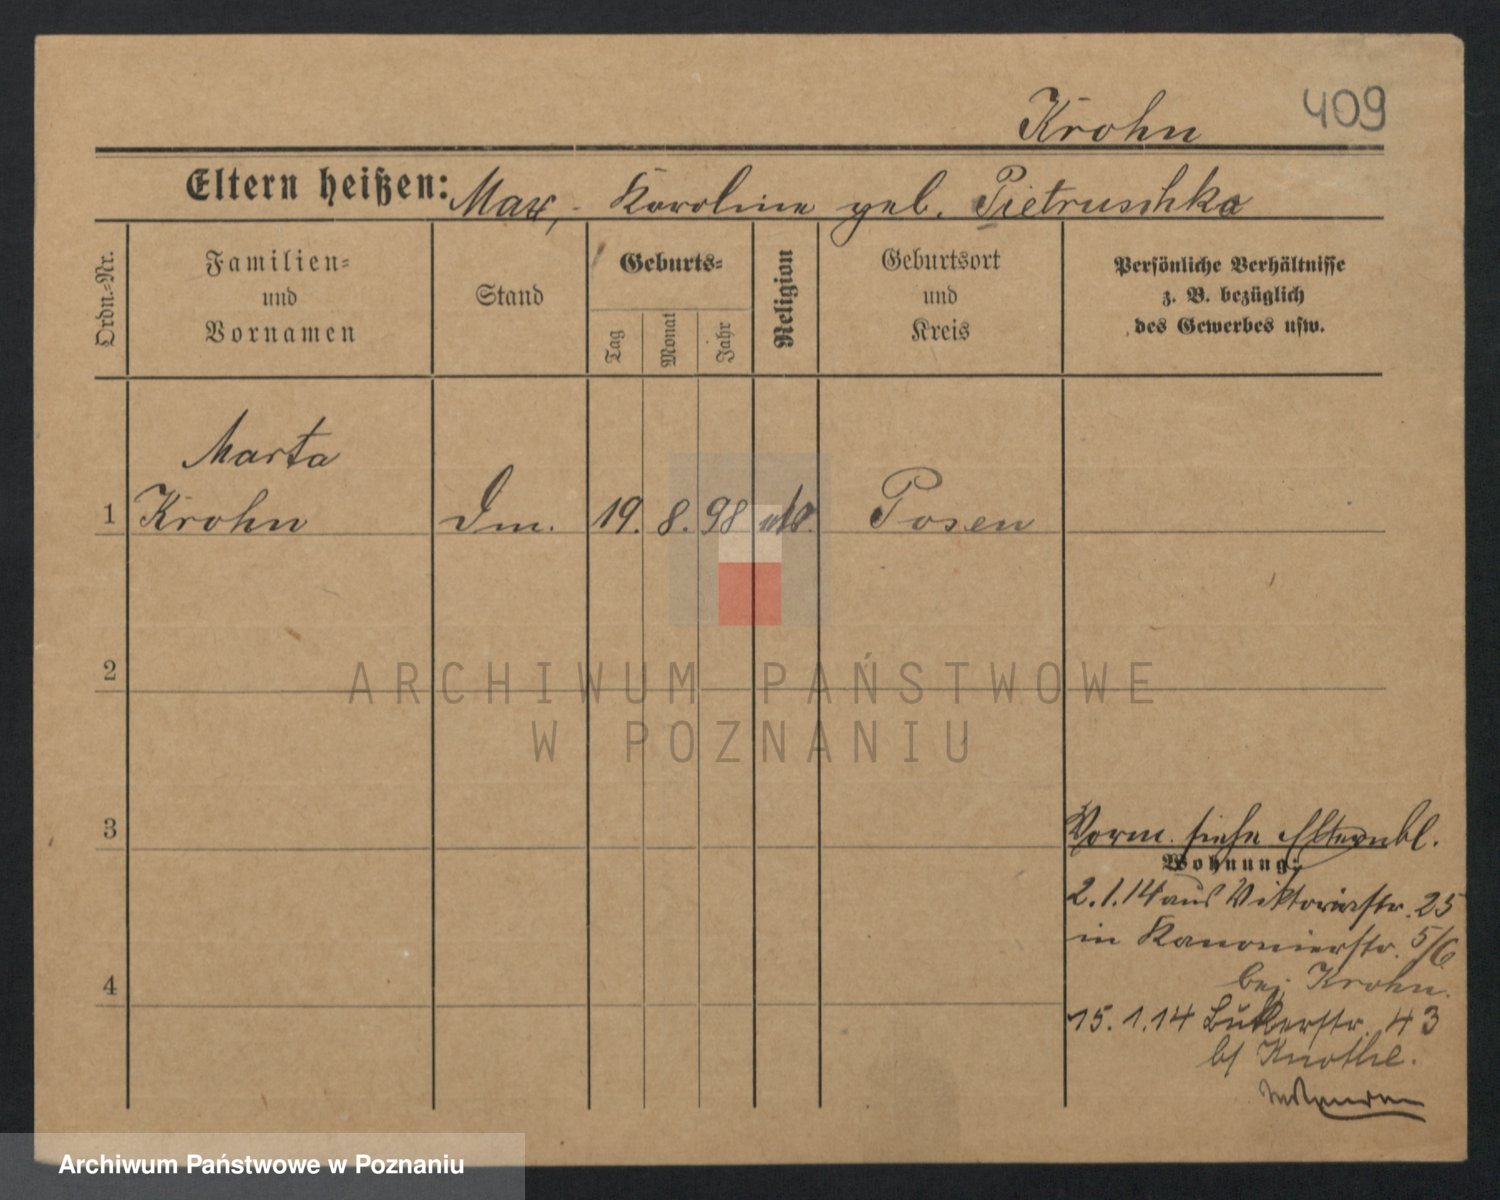 Krohn 409
Eltern heißen: Max, Karoline geb. Pietruschka
Ordn.=Nr.
Familien=
und
Vornamen
Stand
Geburts=
Tag
Monat
Jahr
Religion
Geburtsort
und
Kreis
Persönliche Verhältnisse
z. B. bezüglich
des Gewerbes usw.
Marta
1 Krohn Dm. 19. 8. 98 Posen
2
3
Vorm. siehe Elternbl.
Wohnung:
2.1.14 aus Viktoriastr. 25
in Kanonierstr. 5/6
4
bei Krohn.
15.1.14 Bukerstr. 43
b/ Knothe.
ARCHIWUM PAŃSTWOWE
W POZNANIU
Archiwum Państwowe w Poznaniu